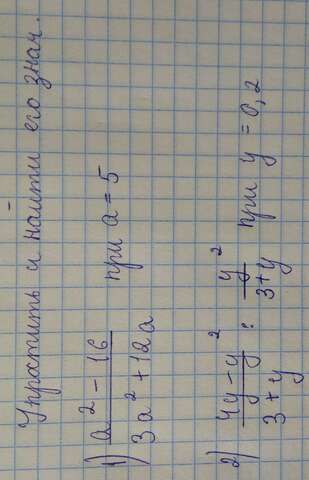 Упрастить и найти его знач.
1) a² - 16 / 3a² + 12a при a = 5
2) 4y - y² / 3 + y : y² / 3 + y при y = 0,2